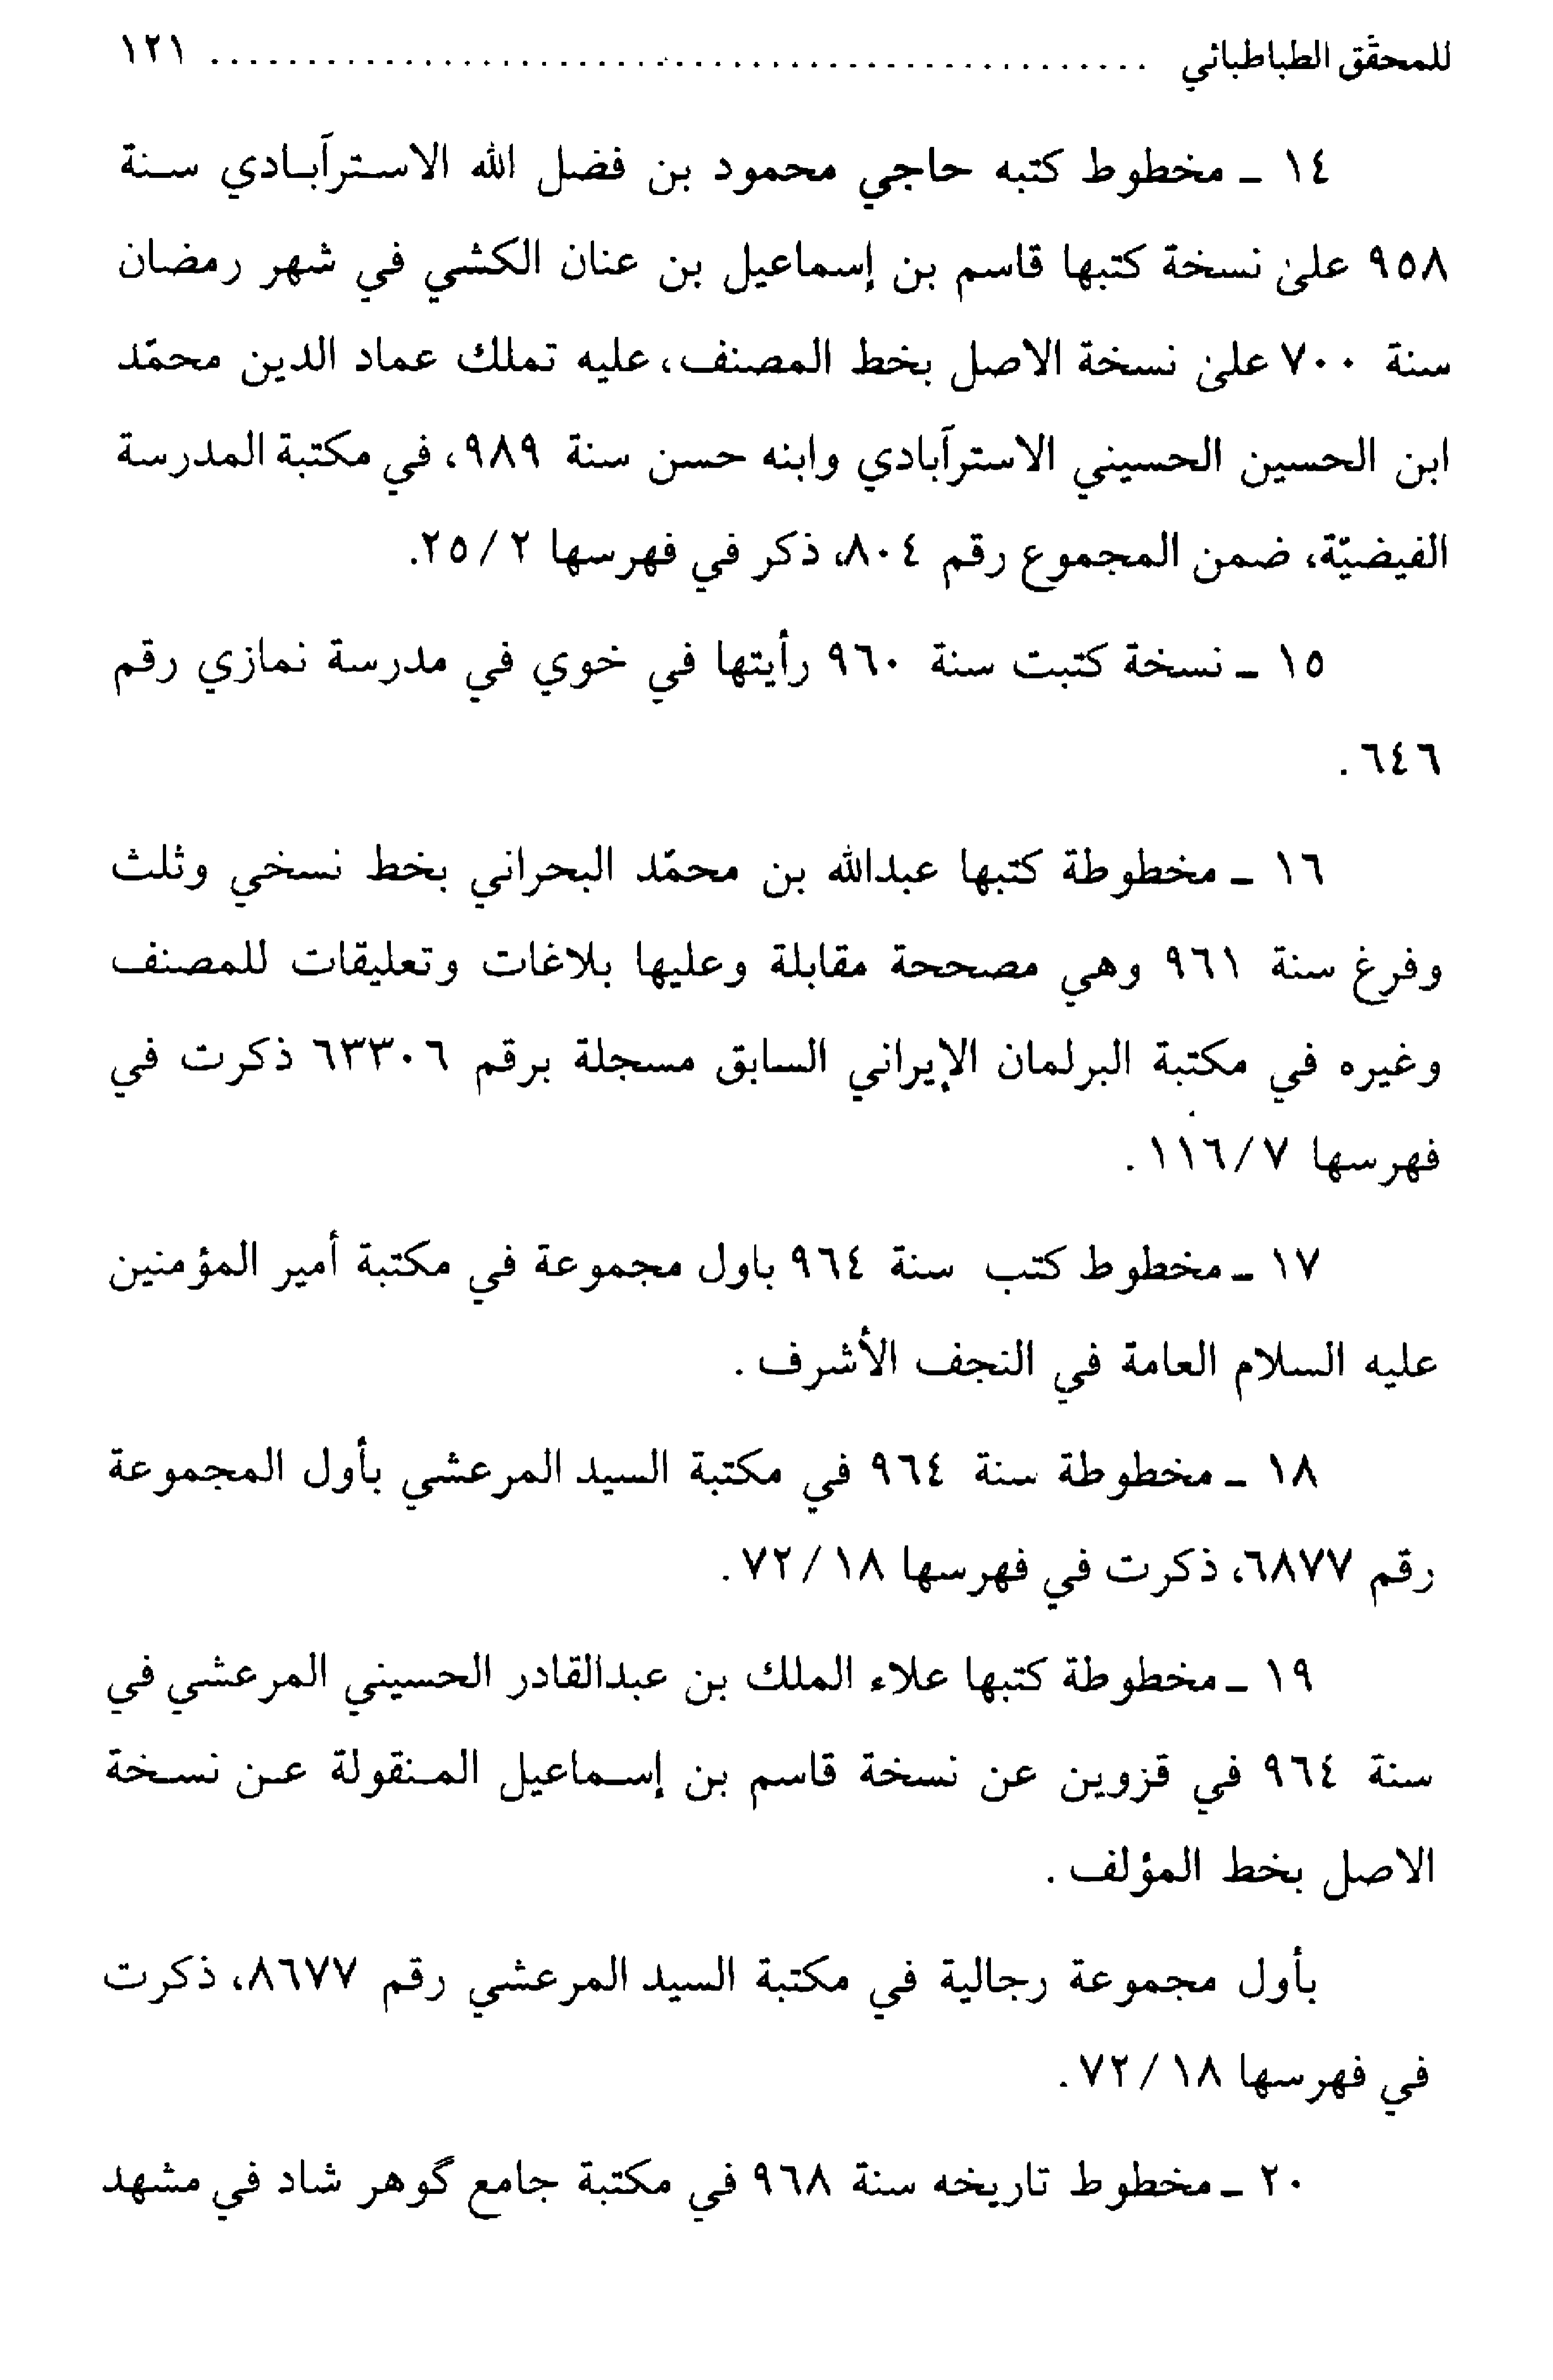 للمحقّق الطباطبائي ................................................ ١٢١
١٤ ـ مخطوط كتبه حاجي محمود بن فضل الله الاسترآبادي سنة
٩٥٨ علىٰ نسخة كتبها قاسم بن إسماعيل بن عنان الكشي في شهر رمضان
سنة ٧٠٠ علىٰ نسخة الاصل بخط المصنف، عليه تملك عماد الدين محمّد
ابن الحسين الحسيني الاسترآبادي وابنه حسن سنة ٩٨٩، في مكتبة المدرسة
الفيضيّة، ضمن المجموع رقم ٨٠٤، ذكر في فهرسها ٢/ ٢٥.
١٥ ـ نسخة كتبت سنة ٩٦٠ رأيتها في خوي في مدرسة نمازي رقم
٦٤٦ .
١٦ ـ مخطوطة كتبها عبدالله بن محمّد البحراني بخط نسخي وثلث
وفرغ سنة ٩٦١ وهي مصححة مقابلة وعليها بلاغات وتعليقات للمصنف
وغيره في مكتبة البرلمان الإيراني السابق مسجلة برقم ٦٣٣٠٦ ذكرت في
فهرسها ٧/ ١١٦ .
١٧ ـ مخطوط كتب سنة ٩٦٤ باول مجموعة في مكتبة أمير المؤمنين
عليه السلام العامة في النجف الأشرف .
١٨ ـ مخطوطة سنة ٩٦٤ في مكتبة السيد المرعشي بأول المجموعة
رقم ٦٨٧٧، ذكرت في فهرسها ١٨/ ٧٢ .
١٩ ـ مخطوطة كتبها علاء الملك بن عبدالقادر الحسيني المرعشي في
سنة ٩٦٤ في قزوين عن نسخة قاسم بن إسماعيل المنقولة عن نسخة
الاصل بخط المؤلف .
بأول مجموعة رجالية في مكتبة السيد المرعشي رقم ٨٦٧٧، ذكرت
في فهرسها ١٨/ ٧٢ .
٢٠ ـ مخطوط تاريخه سنة ٩٦٨ في مكتبة جامع گوهر شاد في مشهد